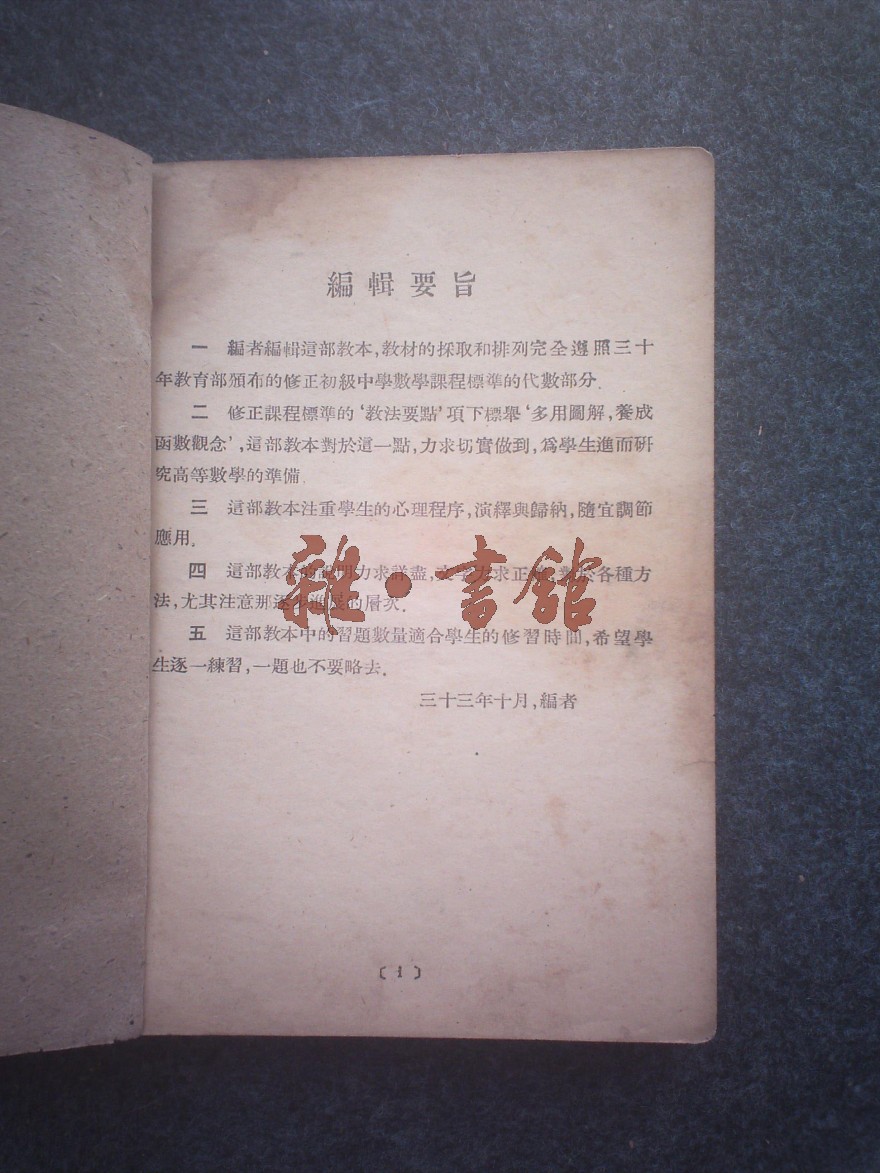 編輯要旨
一 編者編輯這部教本，教材的採取和排列完全遵照三十
年教育部頒布的修正初級中學數學課程標準的代數部分．
二 修正課程標準的‘教法要點’項下標舉‘多用圖解，養成
函數觀念’，這部教本對於這一點，力求切實做到，爲學生進而研
究高等數學的準備．
三 這部教本注重學生的心理程序，演繹與歸納，隨宜調節
應用．
四 這部教本的說明力求詳盡，力求正，對於各種方
法，尤其注意那逐步進展的層次．
五 這部教本中的習題數量適合學生的修習時間，希望學
生逐一練習，一題也不要略去．
三十三年十月，編者
雜·書館
〔1〕